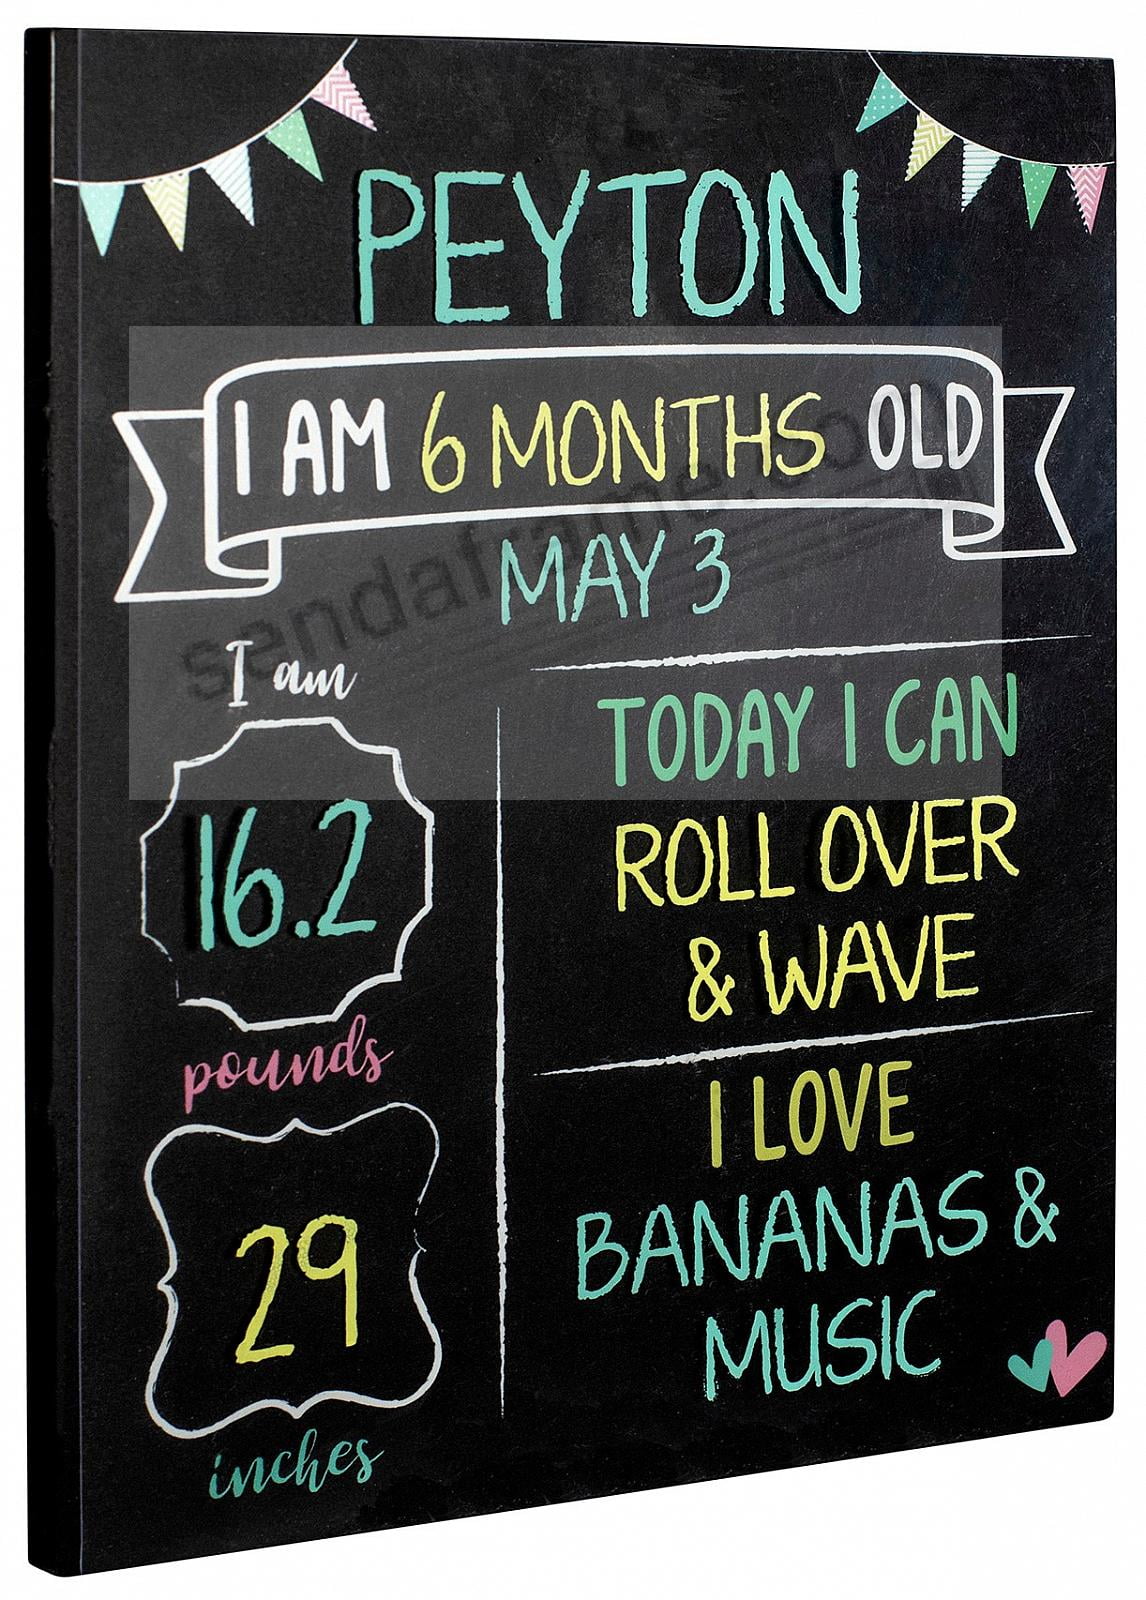 PEYTON
I AM 6 MONTHS OLD
MAY 3
I am
16.2
pounds
29
inches
TODAY I CAN
ROLL OVER
& WAVE
I LOVE
BANANAS &
MUSIC
sendaframe.com